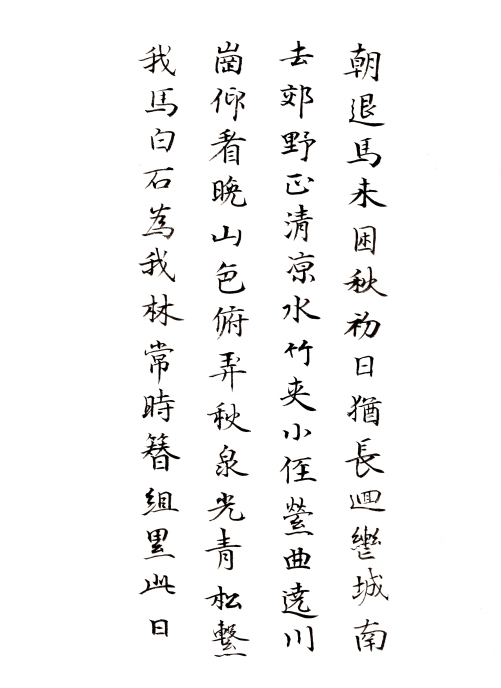 朝退馬未困秋初日猶長迴轡城南
去郊野正清涼水竹夾小徑縈曲遶川
崗仰看晚山色俯弄秋泉光青松繫
我馬白石為我林常時簪組累此日